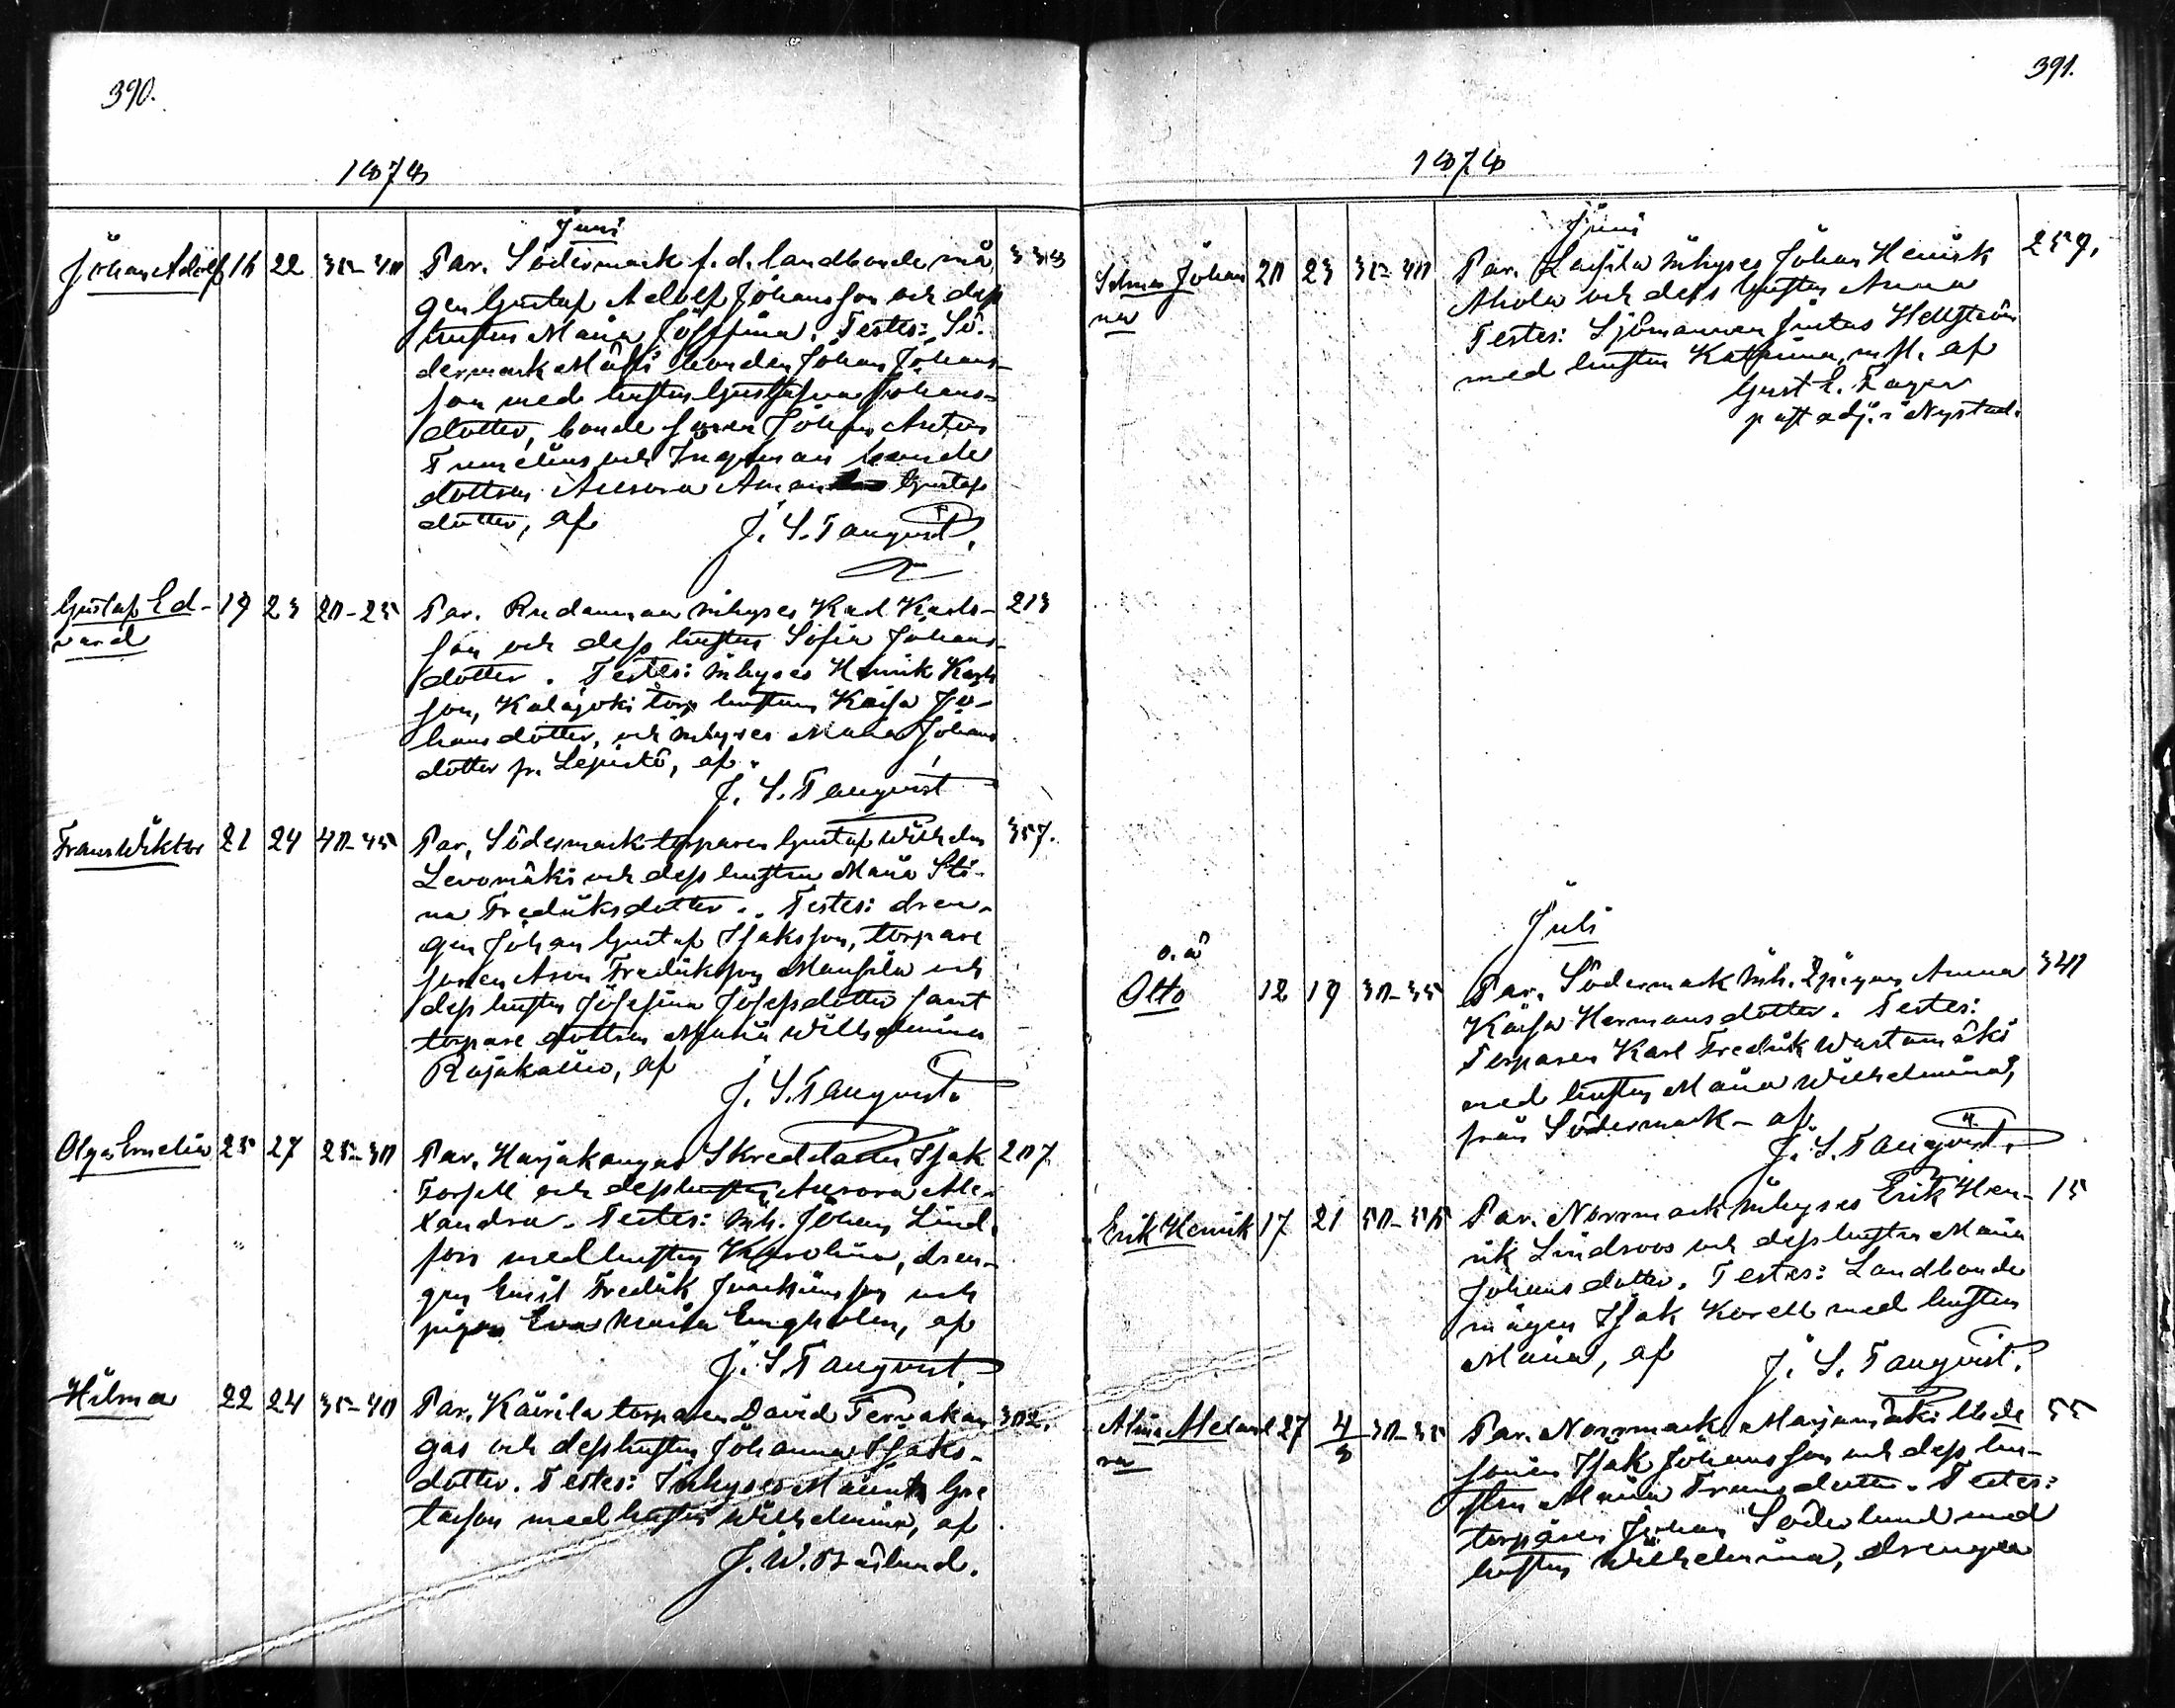 390.
1878
Juni
Johan Adolf 16 22 35-40 Par. Södermark f. d. landbonde må 338
gen Gustaf Adolf Johansson och dess
hustru Maria Josefina. Testes: Sö-
dermark Mäki bonden Johan Johans-
son med hustru Gustafva Johans-
dotter, bonde sonen Johan Anton
och Ingman bonde
dottren Aurora Amanda Gustafs
dotter, af
J. S. Tanqvist.
Gustaf Ed- 19 23 20-25 Par. Rudanmaa inhyses Karl Karls- 213
vard
son och dess hustru Sofia Johans-
dotter. Testes: inhyses Henrik Karls
son, Kalajoki torp hustrun Kaisa Jo-
hansdotter, och inhyses Maria Johans
dotter fr. Lepistö, af
J. S. Tanqvist
Frans Wiktor 21 24 40-45 Par. Södermark torparen Gustaf Wilhelm 357.
Levomäki och dess hustru Maria Sti-
na Fredriksdotter. Testes: dren-
gen Johan Gustaf Isaksson, torpare
sonen Aron Fredriksson Mansila och
dess hustru Josefina Josefsdotter samt
torpare dottren Maria Wilhelmina
Rajakallio, af
J. S. Tanqvist.
Olga Emelia 25 27 25-30 Par. Harjakangas Skreddaren Isak 207
Forsell och dess hustru Aurora Ale-
xandra. Testes: Inh. Johan Lind-
fors med hustru Karolina, dren-
gen Emil Fredrik Joackimsson och
pigan Eva Maria Engholm, af
J. S. Tanqvist.
Hilma 22 24 35-40 Par. Kairila torparen David Tervakan 302.
gas och dess hustru Johanna Isaks-
dotter. Testes: Inhyses Maunts Gus
tafson med hustru Wilhelmina, af
J. W. Barlund.
391.
1878
Juni
Selma Johan 20 23 35-40 Par. Lassila inhyses Johan Henrik 259.
na
Ahola och dess hustru Anna
Testes: Sjömannen Justus Hellström
med hustru Katarina, m. fl. af
Gust. E. Fager
past. adj. i Nystad.
Juli
o. ä
Otto 12 19 30-35 Par. Södermark inh. pigan Anna 340
Kaisa Hermansdotter. Testes:
Torparen Karl Fredrik Wartamäki
med hustru Maria Wilhelmina,
från Södermark - af
J. S. Tanqvist.
Erik Henrik 17 21 50-55 Par. Norrmark inhyses Erik Hen- 15
rik Lindroos och dess hustru Maria
Johansdotter. Testes: Landbonde
mågen Isak Korell med hustru
Maria, af
J. S. Tanqvist.
Alina Melani 27 4/8 30-35 Par. Norrmark Marjamäki bde 55
na
sonen Isak Johansson och dess hu-
stru Maria Fransdotter. Testes:
torparen Johan Söderlund med
hustru Wilhelmina, drengen